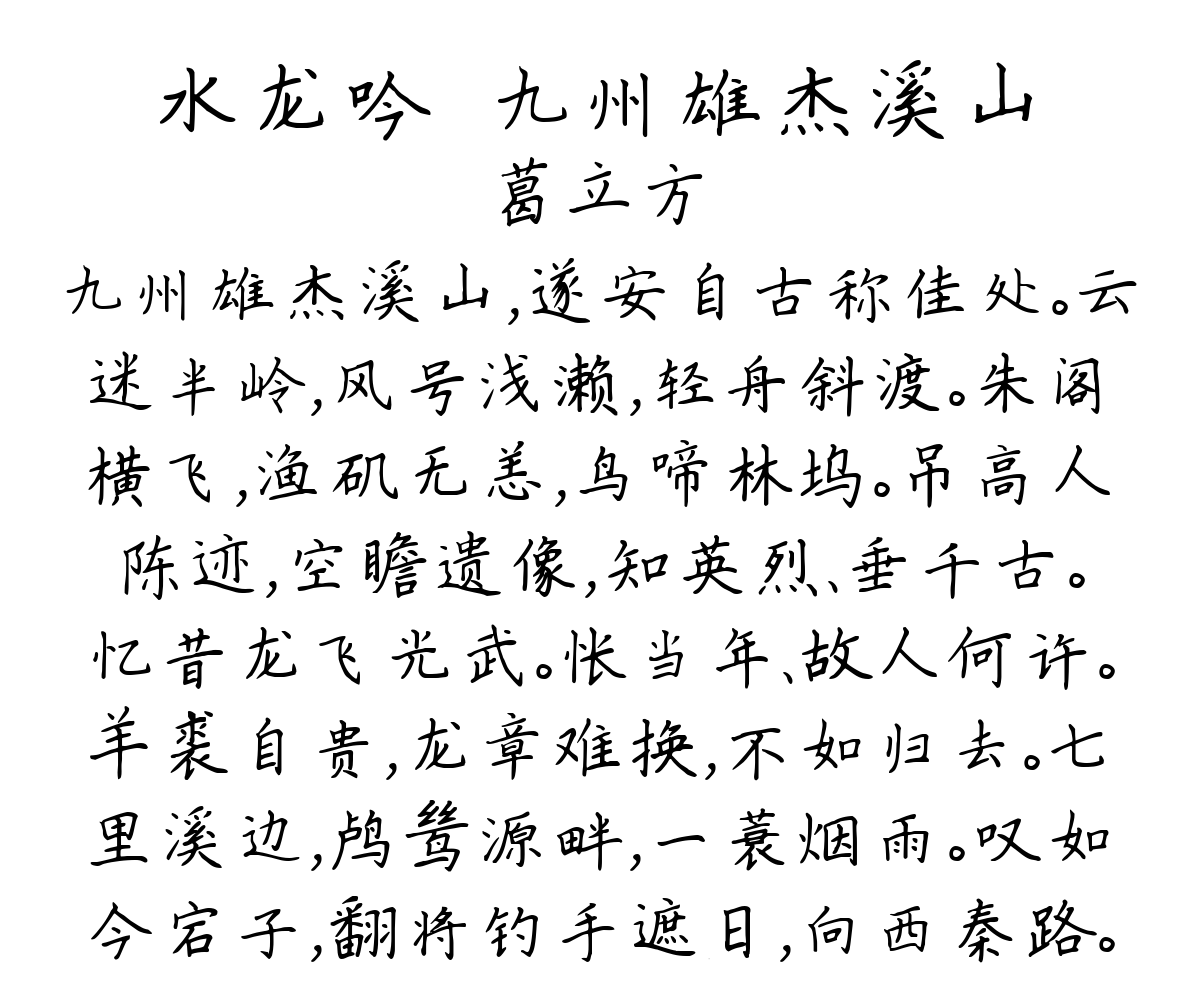 水龙吟 九州雄杰溪山
葛立方
九州雄杰溪山,遂安自古称佳处。云
迷半岭,风号浅濑,轻舟斜渡。朱阁
横飞,渔矶无恙,鸟啼林坞。吊高人
陈迹,空瞻遗像,知英烈、垂千古。
忆昔龙飞光武。怅当年、故人何许。
羊裘自贵,龙章难换,不如归去。七
里溪边,鸬鹚源畔,一蓑烟雨。叹如
今宕子,翻将钓手遮日,向西秦路。